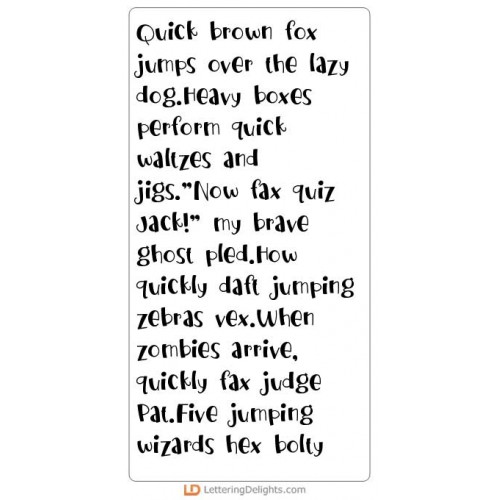 Quick brown fox
jumps over the lazy
dog.Heavy boxes
perform quick
waltzes and
jigs."Now fax quiz
Jack!" my brave
ghost pled.How
quickly daft jumping
zebras vex.When
zombies arrive,
quickly fax judge
Pat.Five jumping
wizards hex bolty
LD LetteringDelights.com